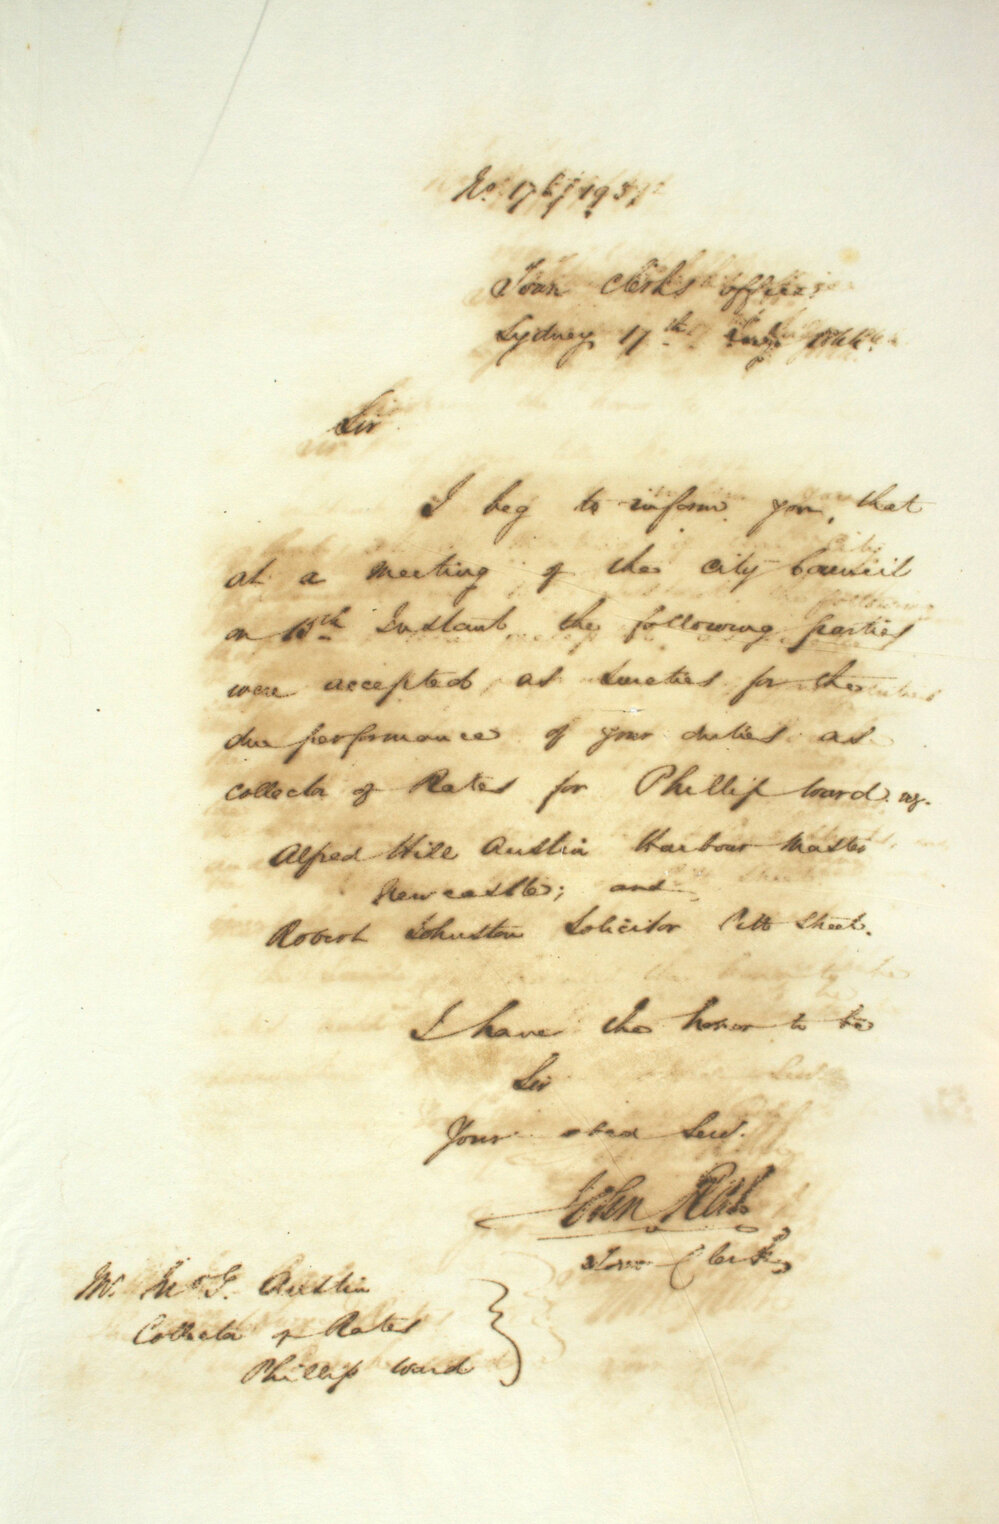 Town Clerk's Office
Sydney 17th Augt 1844
Sir
I beg to inform you, that
at a Meeting of the City Council
on Instant the following parties
were accepted as Sureties for the
due performance of your duties as
Collector of Rates for Phillip Ward vz.
Alfred Hill Austin Harbour Master
Newcastle; and
Robert Johnston Solicitor Pitt Street.
I have the honor to be
Sir
Your obed Serv.
John Rae
Town Clerk
Mr. Jno G. Austin
Collector of Rates
Phillip Ward